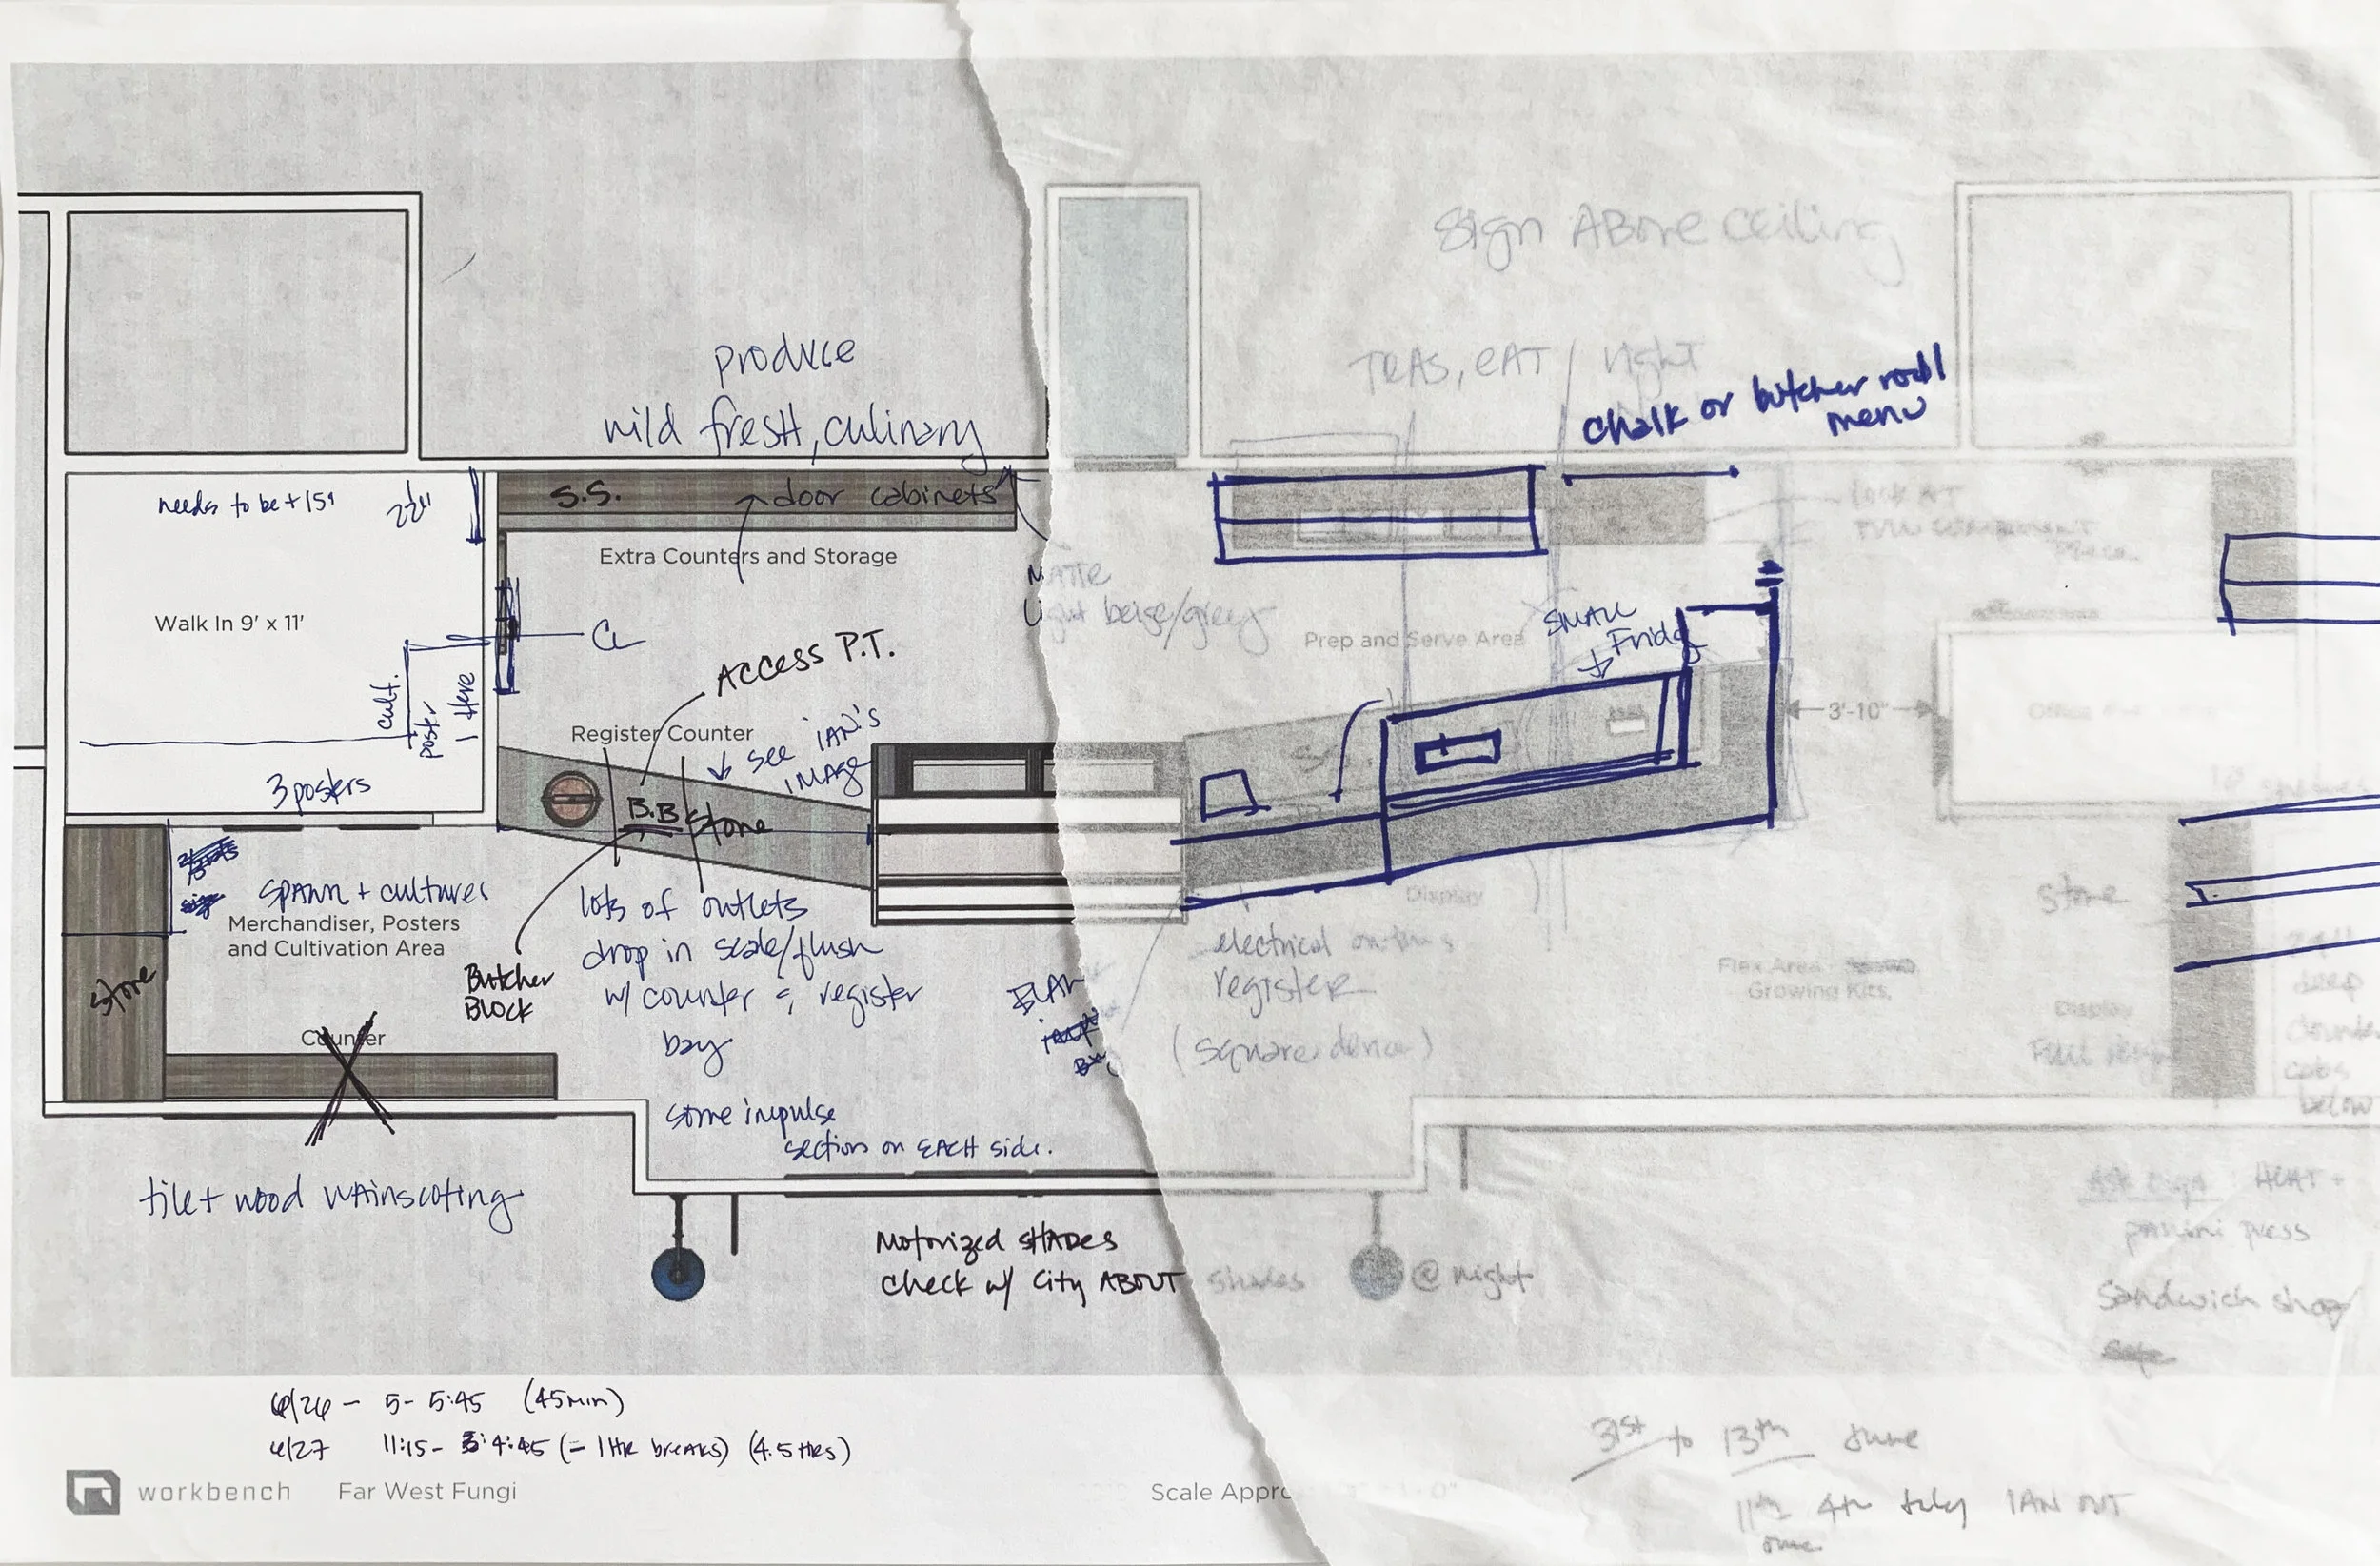 Sign ABove ceiling
produce
wild fresh, culinary
TEAS, EAT / right
chalk or butcher roll
menu
needs to be +15"
22"
S.S.
door cabinets
Extra Counters and Storage
look AT
MATTE
Light beige/grey
Walk In 9' x 11'
CL
Prep and Serve Area
SMALL
Fridg
ACCESS P.T.
cult.
poster
Here
Register Counter
see IAN'S
IMAGE
3'-10"
3 posters
B.B
stone
S.S.
SPAWN + cultures
Merchandiser, Posters
and Cultivation Area
store
Butcher
BLOCK
lots of outlets
drop in scale/flush
w/ counter & register
bay
Display
electrical
register
(square device)
stone
Flex Area
Growing Kits,
Display
Full
deep
below
Counter
some impulse
section on EACH side.
tile + wood wainscoting
Motorized SHADES
check w/ City ABOUT shades @ night
HEAT +
panini press
Sandwich shop
4/26 - 5-5:45 (45min)
4/27 11:15- 4:45 (- 1 HR breaks) (4.5 HRS)
31st to 13th June
11th 4th July IAN OUT
workbench Far West Fungi
Scale Appro